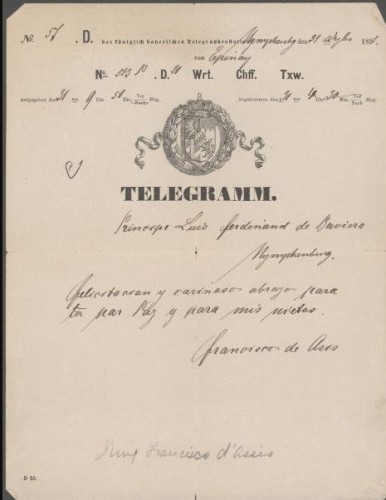 No. 57. D. der königlich bayerischen Telegraphenstation Nymphenburg den 31 188
von Epinay
No. 513 . D. 21 Wrt. Chff. Txw.
Aufgegeben den 31 ten 9 Uhr 50 Min. Vor Nach Mttg. Angekommen den 31 ten 4 Uhr 30 Min. Vor Nach Mttg.
TELEGRAMM.
Principe Luis Ferdinand de Baviera
Nymphenburg.
felicitacion y carinoso abrazo para
tu par Paz y para mis nietos.
francisco de Asis
King Francisco d'Assis
D 25.